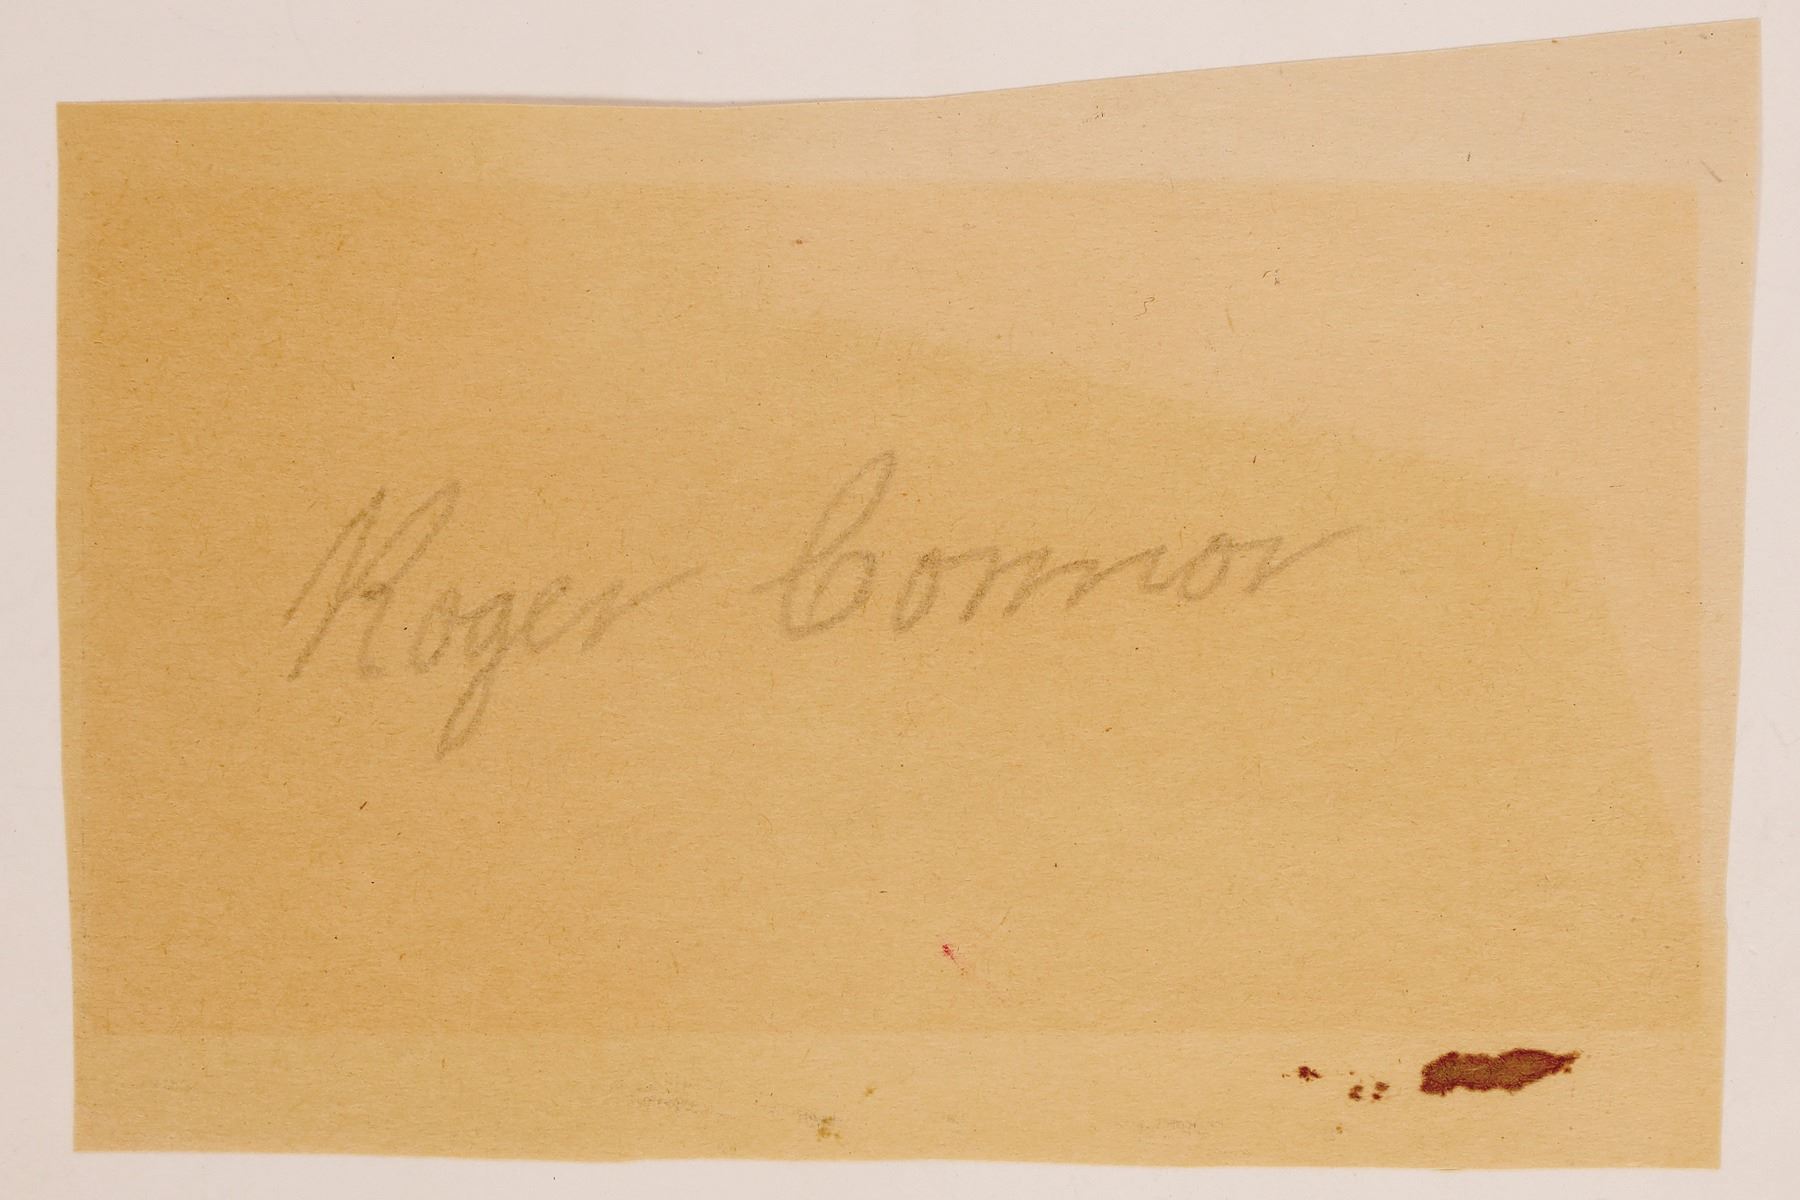 Roger Connor